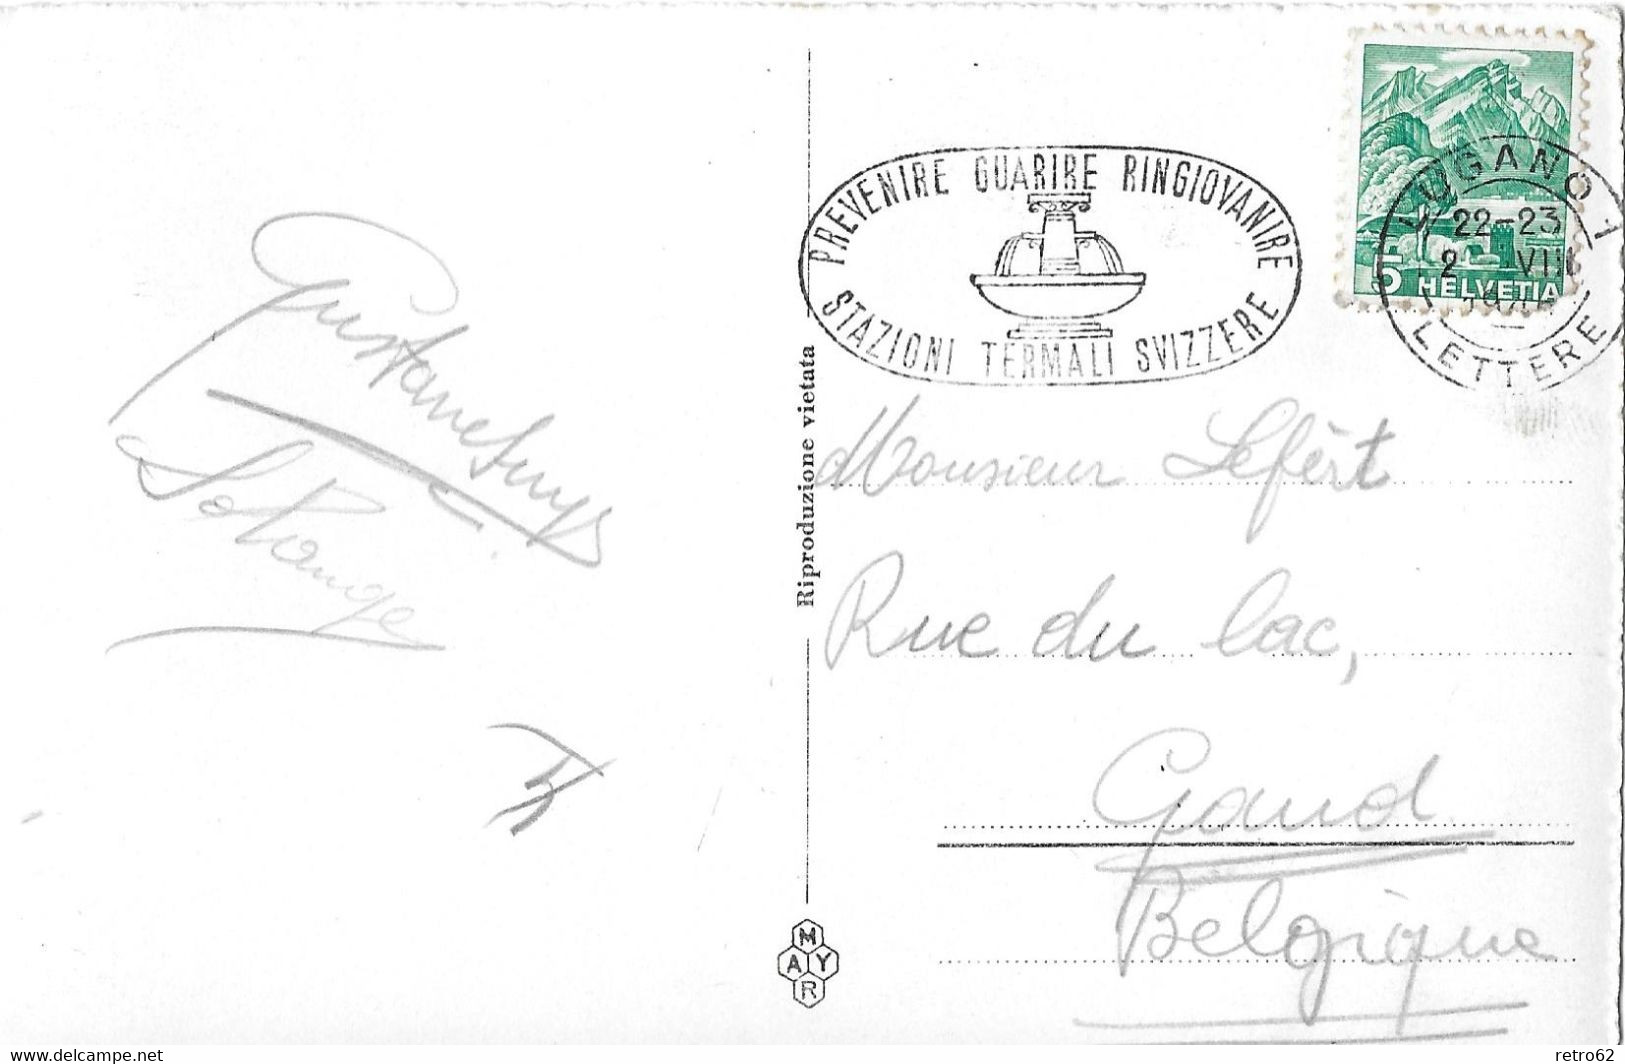 PREVENIRE GUARIRE RINGIOVANIRE
STAZIONI TERMALI SVIZZERE
5 HELVETIA
LUGANO 1
22-23
2 VIII
LETTERE
Gustave Suys
Solange
Riproduzione vietata
Monsieur Lefèrt
Rue du lac,
Gand
Belgique
MAYR
www.delcampe.net
retro62